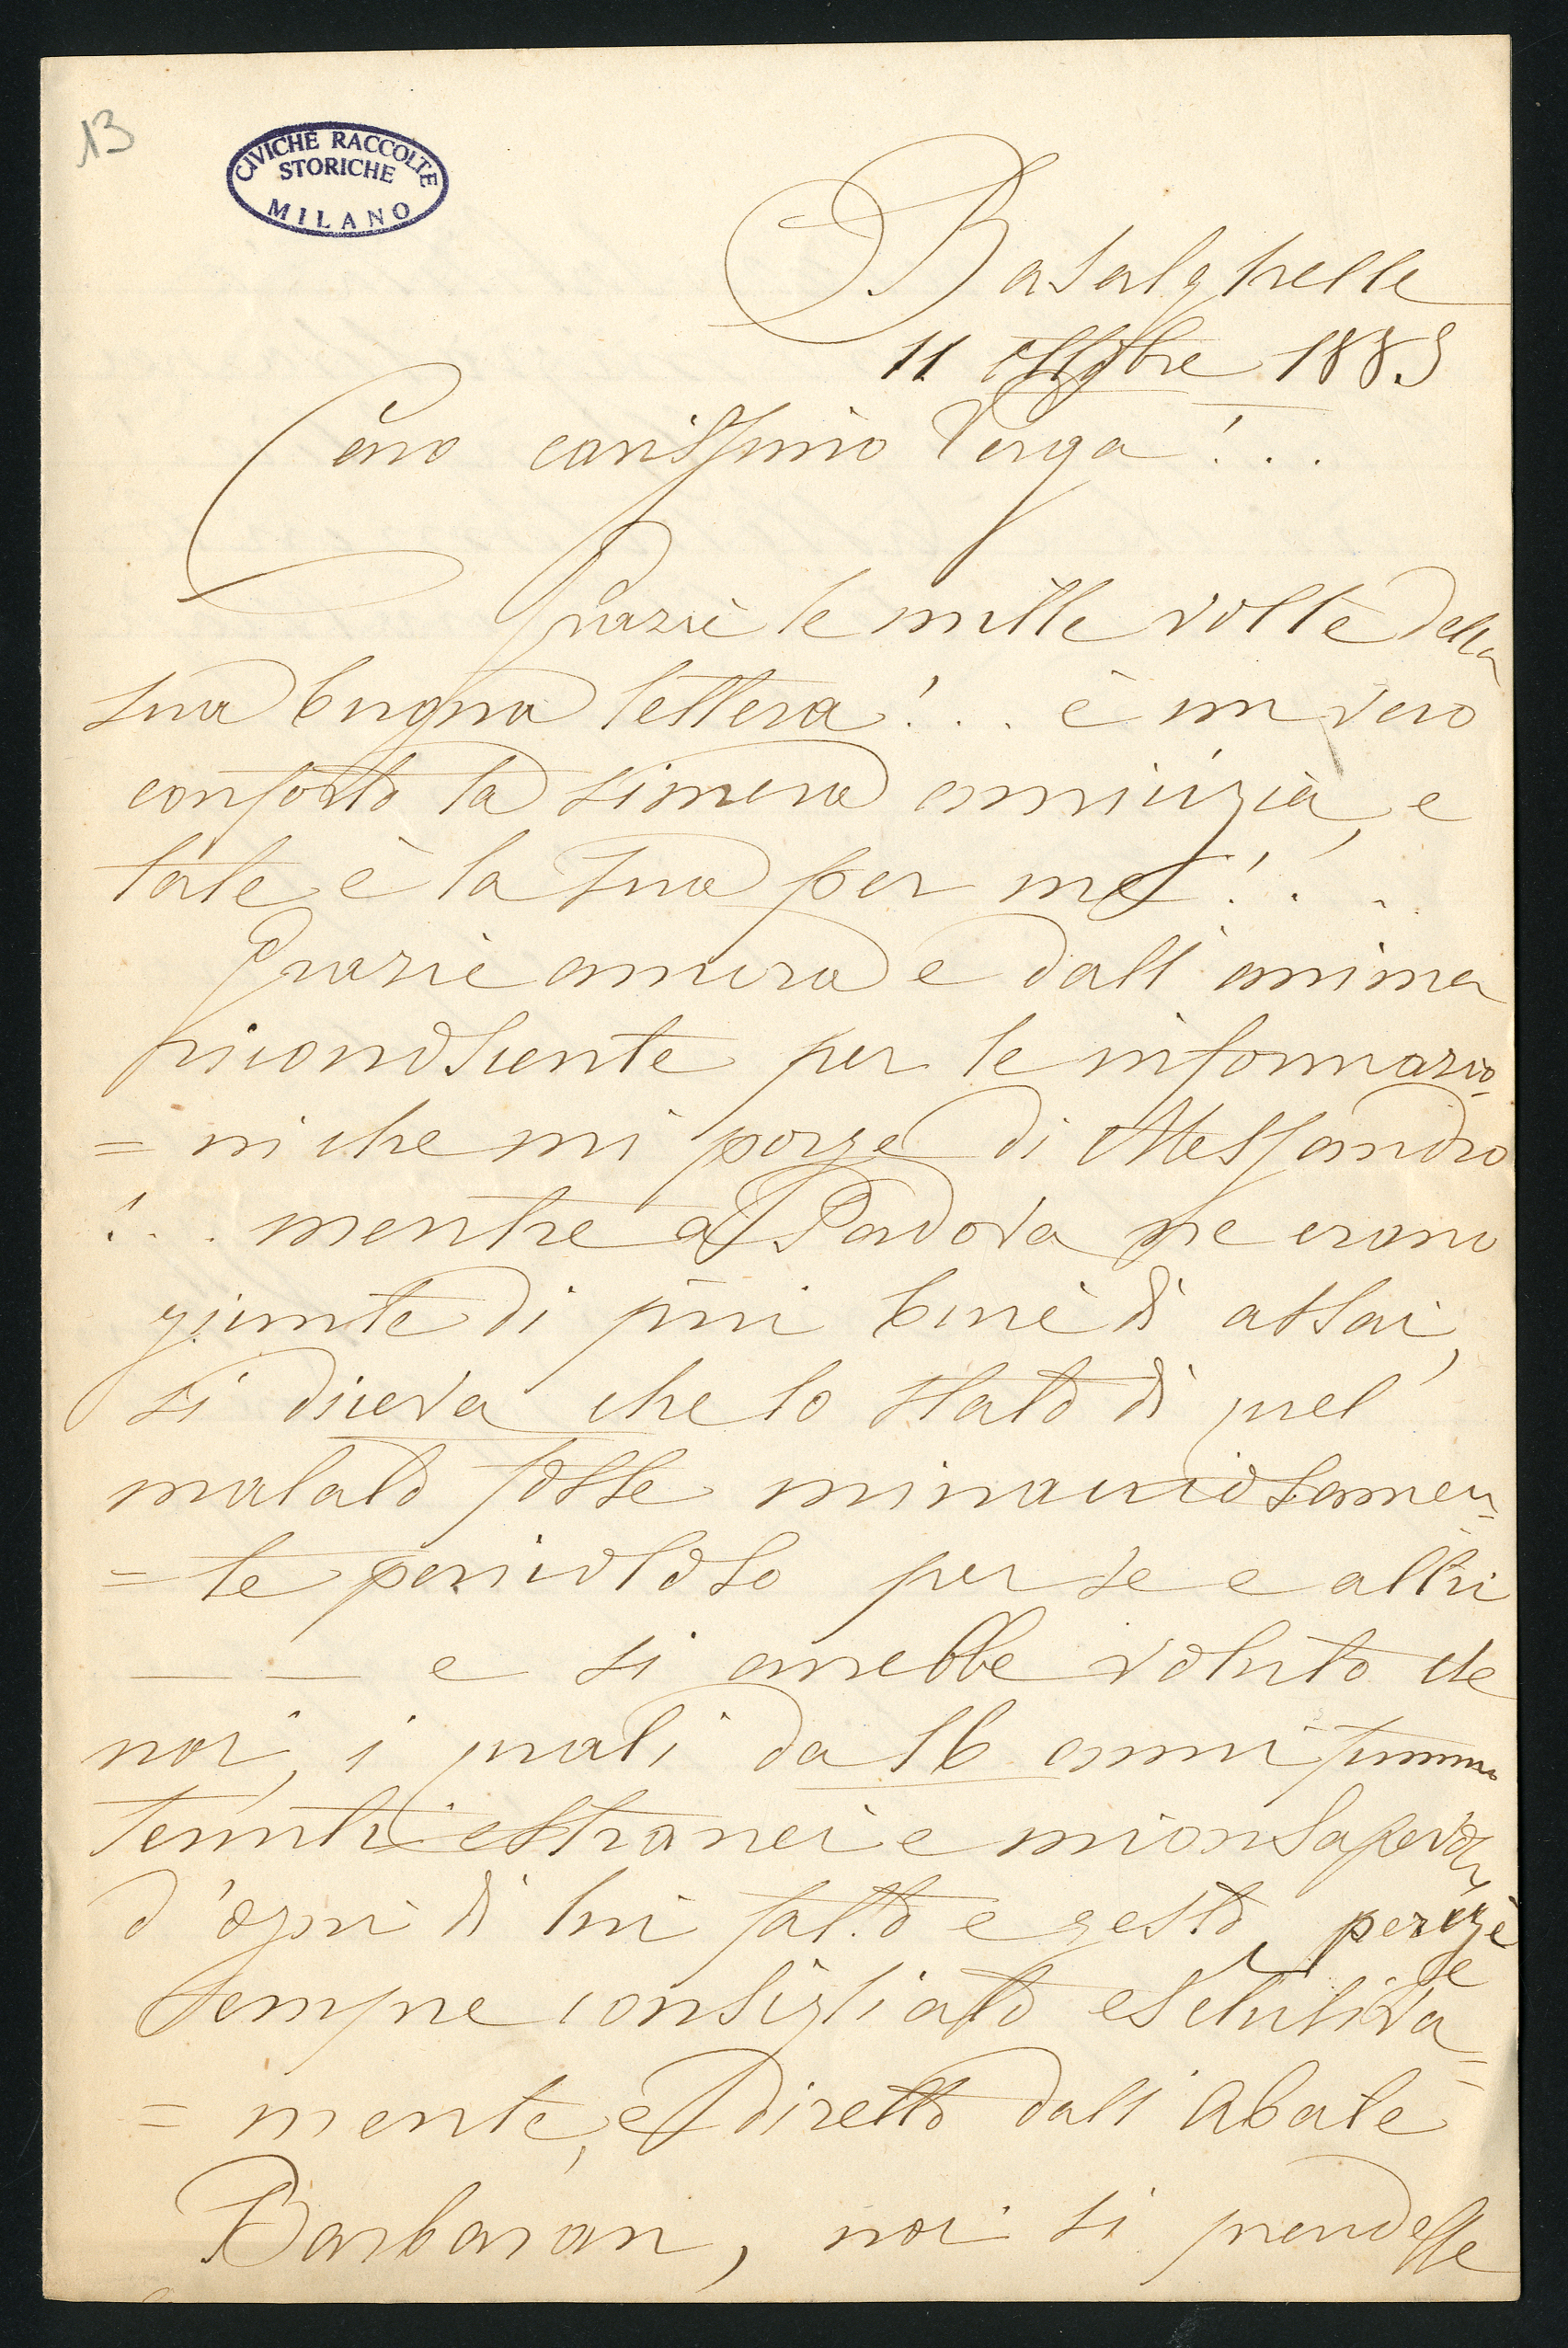 13
CIVICHE RACCOLTE
STORICHE
MILANO
Basalghelle
11 ottobre 1885
Caro carissimo Verga!...
Grazie le mille volte della
sua buona lettera!... è un vero
conforto la sincera amicizia, e
tale è la sua per me!...
Grazie ancora e dall'anima
riconoscente per le informazio
= ni che mi porge di Alessandro
!... mentre a Padova ne erano
giunte di più buie di assai,
si diceva che lo stato di quel
malato fosse minacciosamen=
= te pericoloso per se e altri
— — e si avrebbe voluto che
noi, i quali da 16 anni fummo
tenuti estranei e inconsapevoli
d'ogni di lui fatto e gesto, perchè
sempre consigliato esclusiva=
= mente, e diretto dall'Abate
Barbaran, noi si prendesse